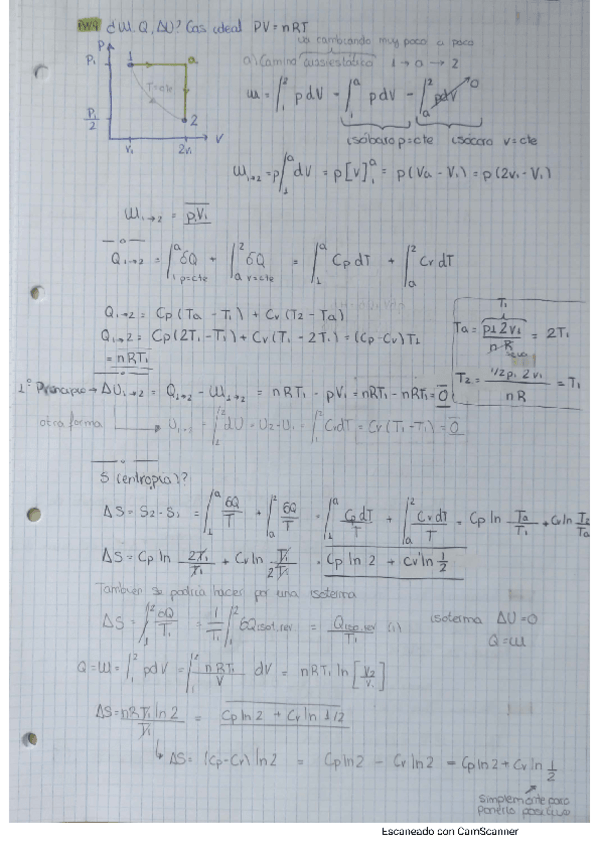 ¿W, Q, ΔU? Gas ideal PV = nRT
va cambiando muy poco a poco
a) Camino cuasiestático 1 → a → 2
P
P₁
P₁/2
1
a
2
T=cte
V₁
2V₁
V
W = ∫₁² pdV = ∫₁ᵃ pdV + ∫ₐ² pdV → 0
isóbaro p=cte isócoro v=cte
W₁→₂ = p∫₁ᵃ dV = p[V]₁ᵃ = p(Va - V₁) = p(2V₁ - V₁)
W₁→₂ = p₁V₁
Q₁→₂ = ∫₁ᵃ δQ (p=cte) + ∫ₐ² δQ (v=cte) = ∫₁ᵃ CpdT + ∫ₐ² CvdT
Q₁→₂ = Cp(Ta - T₁) + Cv(T₂ - Ta)
Q₁→₂ = Cp(2T₁ - T₁) + Cv(T₁ - 2T₁) = (Cp - Cv)T₁
= nRT₁
Ta = p₁2V₁/nR = 2T₁
T₂ = 1/2p₁ 2V₁/nR = T₁
1º Principio → ΔU₁→₂ = Q₁→₂ - W₁→₂ = nRT₁ - pV₁ = nRT₁ - nRT₁ = 0
otra forma → U₁→₂ = ∫₁² dU = U₂ - U₁ = ∫₁² CvdT = Cv(T₁ - T₁) = 0
S (entropía)?
ΔS = S₂ - S₁ = ∫₁ᵃ δQ/T + ∫ₐ² δQ/T = ∫₁ᵃ CpdT/T + ∫ₐ² CvdT/T = Cp ln Ta/T₁ + Cv ln T₂/Ta
ΔS = Cp ln 2T₁/T₁ + Cv ln T₁/2T₁ = Cp ln 2 + Cv ln 1/2
También se podría hacer por una isoterma
ΔS = ∫₁² δQ/T₁ = 1/T₁ ∫₁² δQisot.rev = Qiso.rev/T₁ (1) isoterma ΔU=0
Q=W
Q = W = ∫₁² pdV = ∫₁² nRT₁/V dV = nRT₁ ln [V₂/V₁]
ΔS = nRT₁ ln 2/T₁ = Cp ln 2 + Cv ln 1/2
↳ ΔS = (Cp-Cv) ln 2 = Cp ln 2 - Cv ln 2 = Cp ln 2 + Cv ln 1/2
simplemente para
ponerlo igual
Escaneado con CamScanner